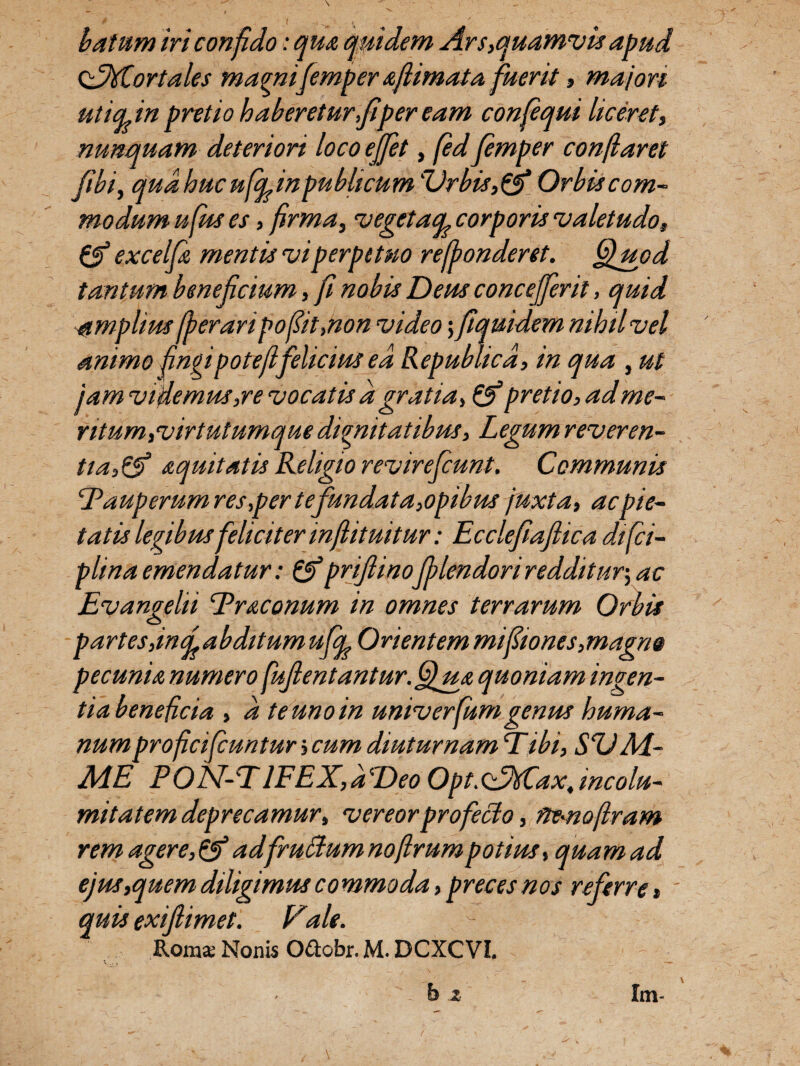 batum iri confido : quæ quidem Ars,quamvis apud
Mortales magni ſemper æſtimata fuerit , majori
utiq; in pretio haberetur,ſi per eam conſequi liceret,
nunquam deteriori loco eſſet , ſed ſemper conſtaret
ſibi, quâ huc uſq; in publicum Vrbis,& Orbis com-
modum uſus es , firma, vegetaq; corporis valetudo,
& excelſæ mentis vi perpetuo reſponderet. Quod
tantum beneficium , ſi nobis Deus conceſſerit , quid
amplius ſperari poßit,non video ; ſiquidem nihil vel
animo fingi poteſt felicius eâ Republicâ, in qua , ut
jam videmus,re vocatis à gratia, & pretio, ad me-
ritum,virtutumque dignitatibus, Legum reveren-
tia,& æquitatis Religio revireſcunt. Communis
Pauperum res,per te fundata,opibus juxta, ac pie-
tatis legibus feliciter inſtituitur : Eccleſiaſtica diſci-
plina emendatur : & priſtino ſplendori redditur; ac
Evangelii Præconum in omnes terrarum Orbis
partes,inq; abditum uſq; Orientem mißiones,magno
pecuniæ numero ſuſtentantur. Quæ quoniam ingen-
tia beneficia , à te uno in univerſum genus huma-
num proficiſcuntur ; cum diuturnam Tibi, SUM-
ME PON-TIFEX, à Deo Opt. Max. incolu-
mitatem deprecamur, vereor profecto , ne noſtram
rem agere,& ad fructum noſtrum potius, quam ad
ejus,quem diligimus commoda , preces nos referre ,
quis exiſtimet. Vale.
Romæ Nonis Octobr. M. DCXCVI.
b 2 Im-